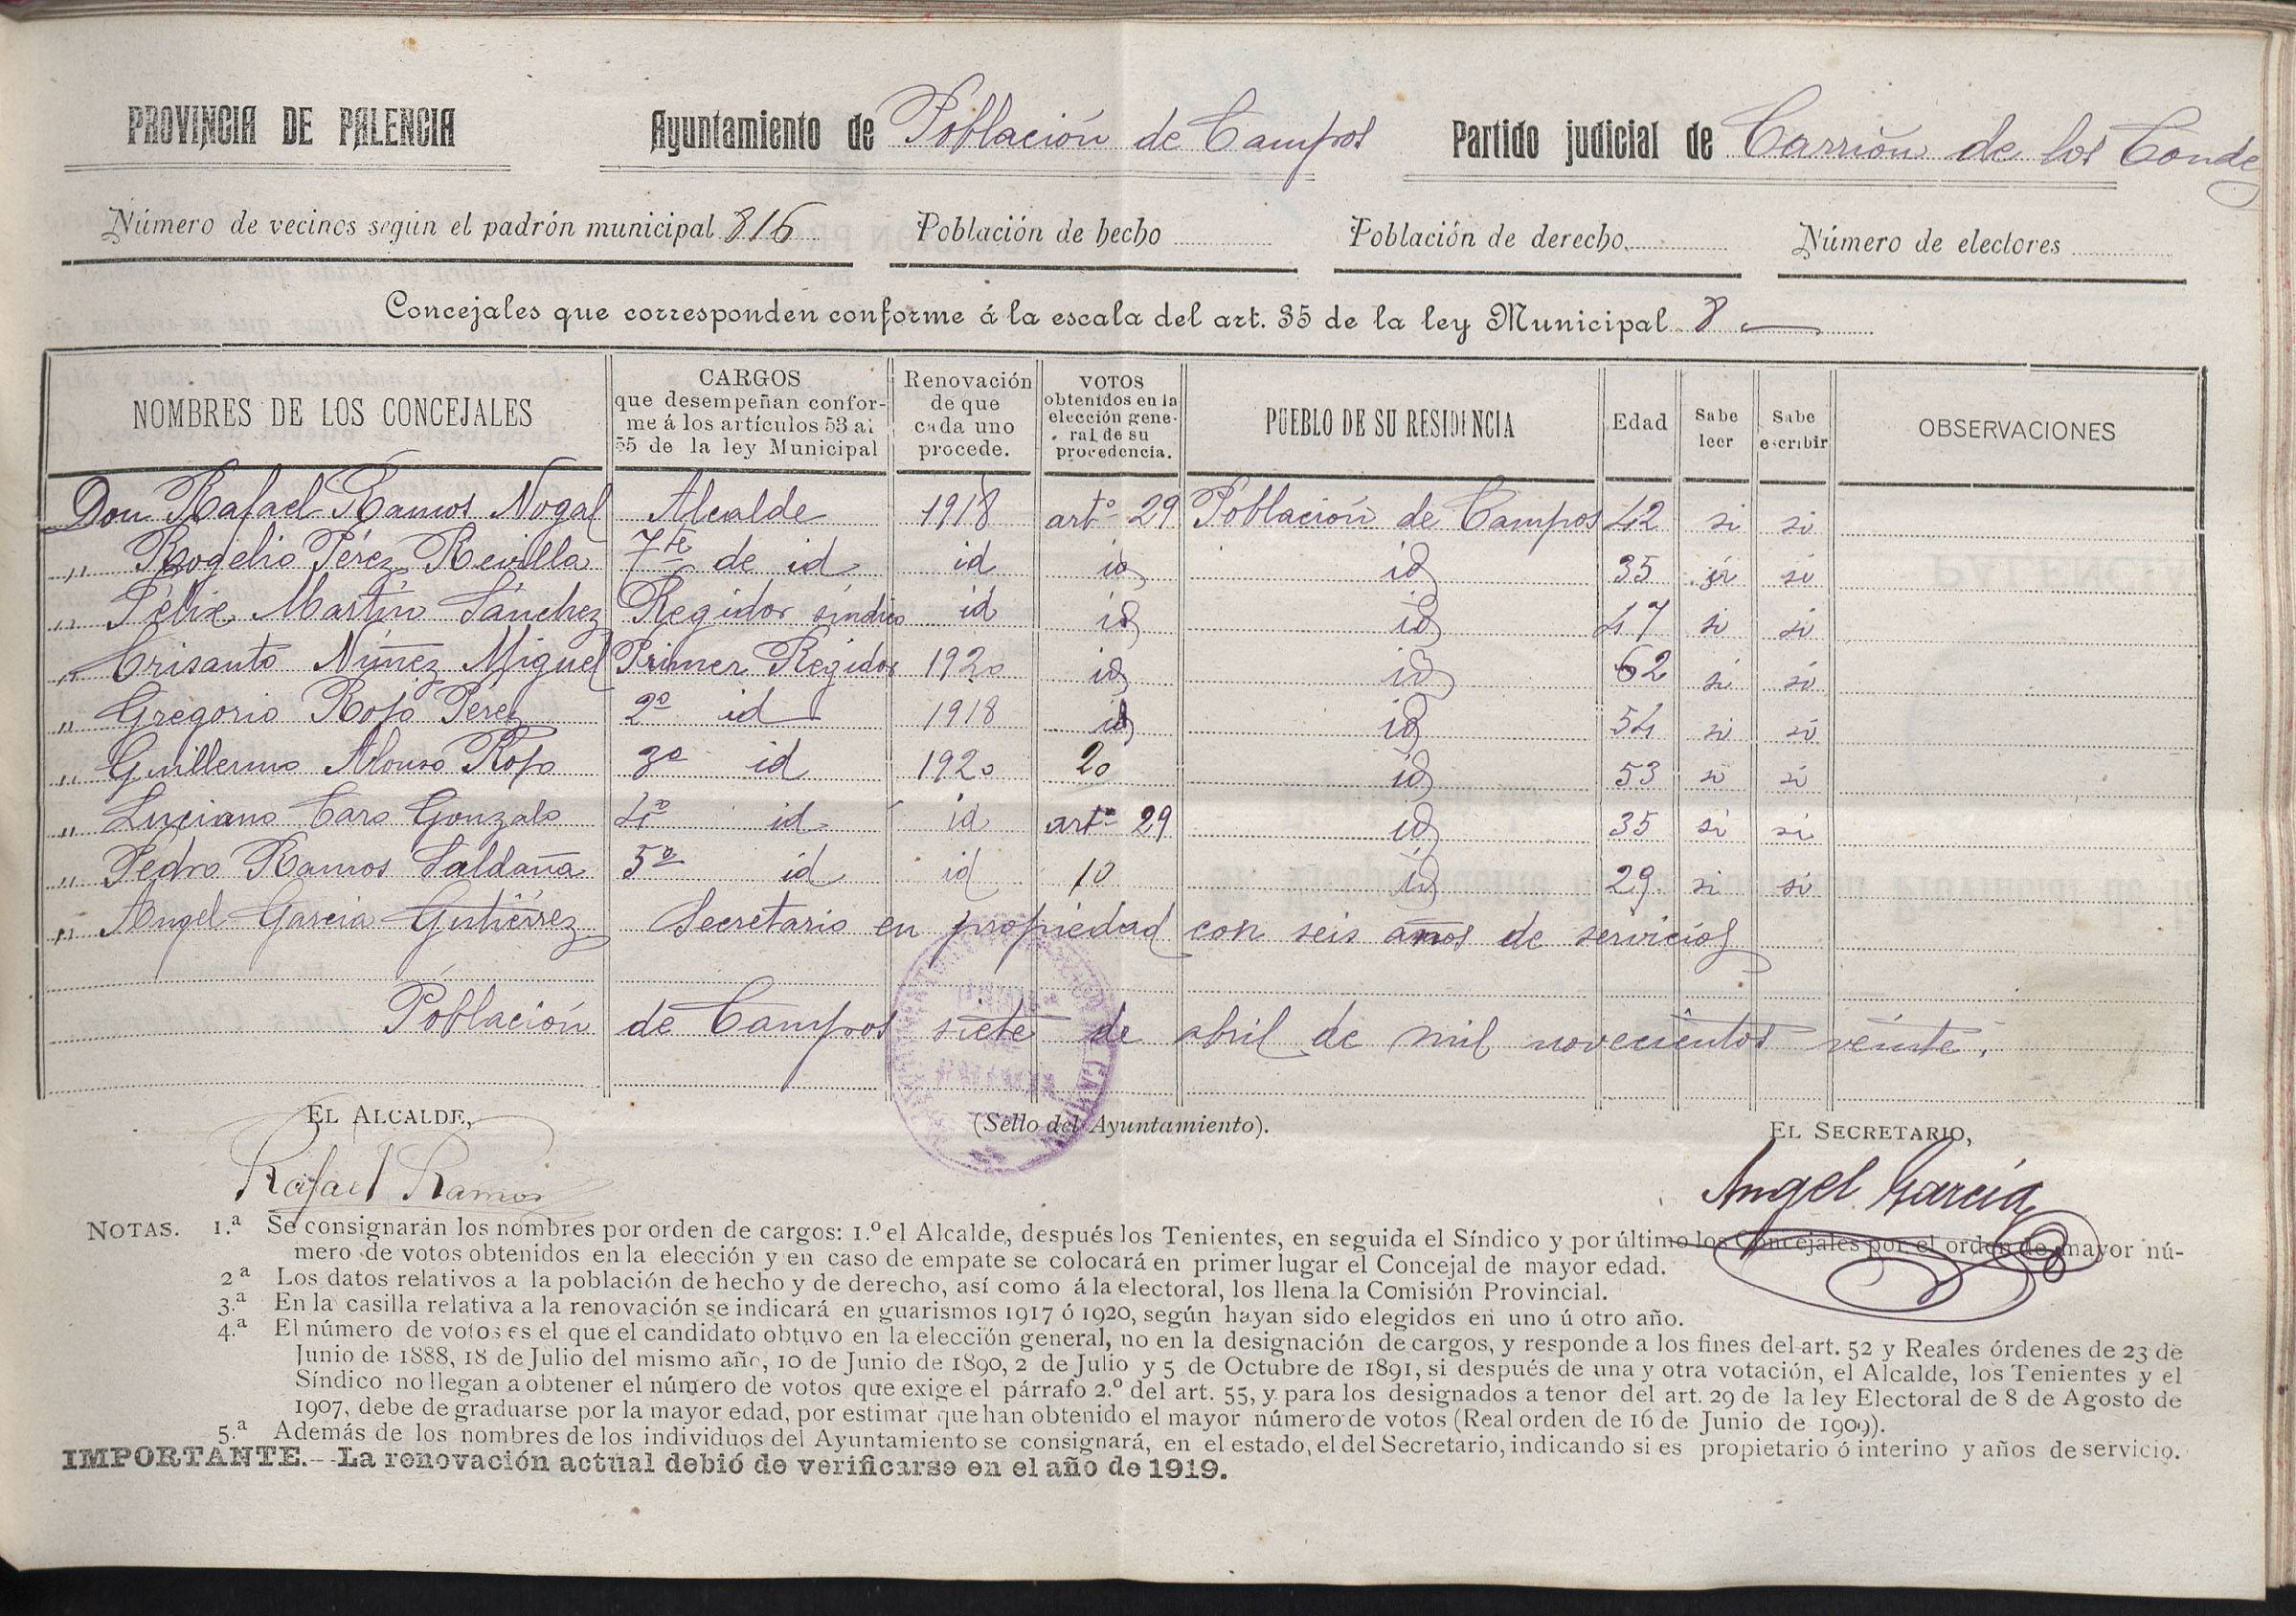 PROVINCIA DE PALENCIA Ayuntamiento de Población de Campos Partido judicial de Carrión de los Conde
Número de vecinos según el padrón municipal 816 Población de hecho Población de derecho Número de electores
Concejales que corresponden conforme á la escala del art. 35 de la ley Municipal 8
NOMBRES DE LOS CONCEJALES
CARGOS
que desempeñan confor-
me á los artículos 53 al
55 de la ley Municipal
Renovación
de que
cada uno
procede.
VOTOS
obtenidos en la
elección gene-
ral de su
procedencia.
PUEBLO DE SU RESIDENCIA
Edad
Sabe
leer
Sabe
escribir
OBSERVACIONES
Don Rafael Ramos Nogal Alcalde 1918 artº 29 Población de Campos 42 si si
„ Rogelio Pérez Revilla Tte de id id id id 35 si si
„ Félix Martín Sánchez Regidor síndico id id id 47 si si
„ Crisanto Núñez Miguel Primer Regidor 1920 id id 62 si si
„ Gregorio Rojo Pérez 2º id 1918 id id 54 si si
„ Guillermo Alonso Rojo 3º id 1920 20 id 53 si si
„ Luciano Caro Gonzalo 4º id id artº 29 id 35 si si
„ Pedro Ramos Saldaña 5º id id 10 id 29 si si
„ Angel García Gutiérrez Secretario en propiedad con seis años de servicios
Población de Campos siete de abril de mil novecientos veinte.
EL ALCALDE, (Sello del Ayuntamiento). EL SECRETARIO,
Rafael Ramos Angel García
NOTAS. 1.ª Se consignarán los nombres por orden de cargos: 1.º el Alcalde, después los Tenientes, en seguida el Síndico y por último los Concejales por el orden de mayor nú-
mero de votos obtenidos en la elección y en caso de empate se colocará en primer lugar el Concejal de mayor edad.
2ª Los datos relativos a la población de hecho y de derecho, así como á la electoral, los llena la Comisión Provincial.
3.ª En la casilla relativa a la renovación se indicará en guarismos 1917 ó 1920, según hayan sido elegidos en uno ú otro año.
4.ª El número de votos es el que el candidato obtuvo en la elección general, no en la designación de cargos, y responde a los fines del art. 52 y Reales órdenes de 23 de
Junio de 1888, 18 de Julio del mismo año, 10 de Junio de 1890, 2 de Julio y 5 de Octubre de 1891, si después de una y otra votación, el Alcalde, los Tenientes y el
Síndico no llegan a obtener el número de votos que exige el párrafo 2.º del art. 55, y para los designados a tenor del art. 29 de la ley Electoral de 8 de Agosto de
1907, debe de graduarse por la mayor edad, por estimar que han obtenido el mayor número de votos (Real orden de 16 de Junio de 1909).
5.ª Además de los nombres de los individuos del Ayuntamiento se consignará, en el estado, el del Secretario, indicando si es propietario ó interino y años de servicio.
IMPORTANTE.--La renovación actual debió de verificarse en el año de 1919.